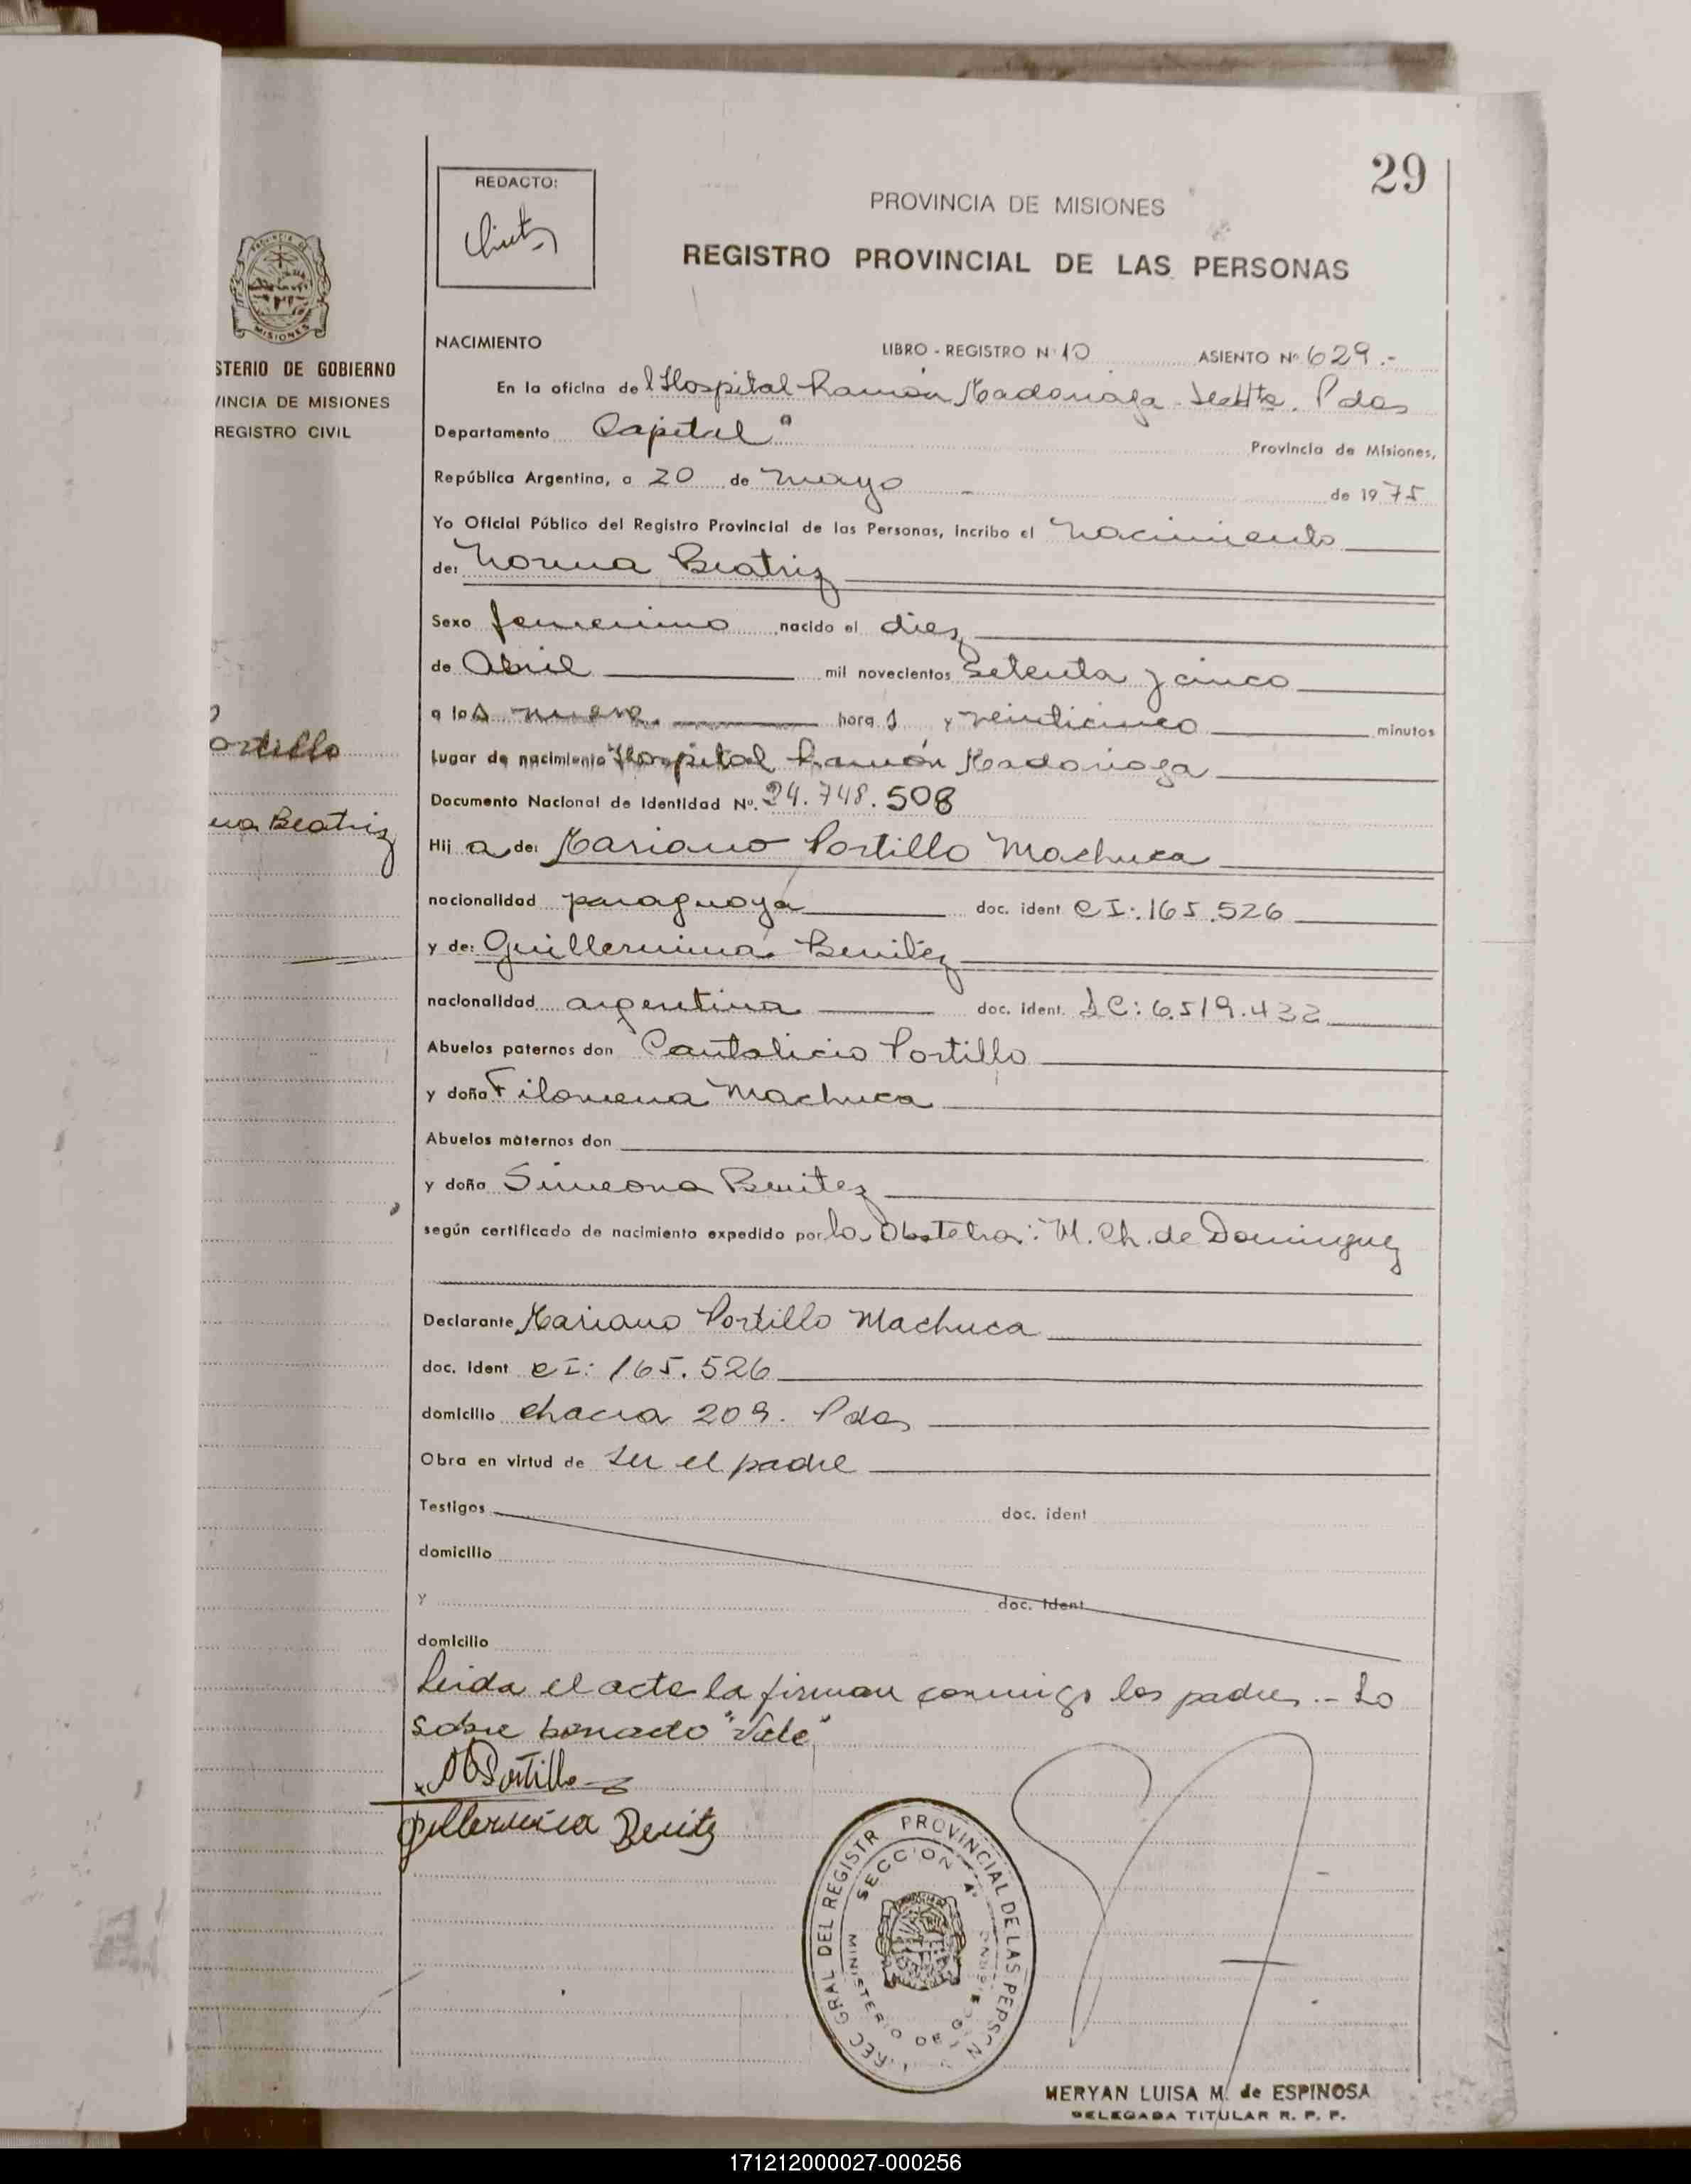 29
REDACTO:
PROVINCIA DE MISIONES
REGISTRO PROVINCIAL DE LAS PERSONAS
MISIONES
STERIO DE GOBIERNO
VINCIA DE MISIONES
REGISTRO CIVIL
ortillo
ma Beatriz
NACIMIENTO LIBRO - REGISTRO Nº 10 ASIENTO Nº 629.-
En la oficina del Hospital Ramón Madariaga Pdas
Departamento Capital" Provincia de Misiones,
República Argentina, a 20 de mayo de 1975
Yo Oficial Público del Registro Provincial de las Personas, incribo el nacimiento
de: Norma Beatriz
Sexo femenino nacido el diez
de Abril mil novecientos Setenta y cinco
a las nueve hora s y veinticinco minutos
Lugar de nacimiento Hospital Ramón Madariaga
Documento Nacional de Identidad Nº. 24.748.508
Hij a de: Mariano Portillo Machuca
nacionalidad paraguaya doc. ident CI:.165.526
y de: Guillermina Benitez
nacionalidad argentina doc. ident. LC: 6.519.432
Abuelos paternos don Cantalicio Portillo
y doña Filomena Machuca
Abuelos maternos don
y doña Simeona Benitez
según certificado de nacimiento expedido por la Obstetra: M. Ch. de Dominguez
Declarante Mariano Portillo Machuca
doc. Ident CI: 165.526
domicilio chacra 209. Pdas
Obra en virtud de ser el padre
Testigos doc. ident
domicilio
y doc. Ident
domicilio
Leida el acta la firman conmigo los padres.- Lo
sobre borrado "Vale"
M Portillo
Guillermina Benitz
DIREC GRAL DEL REGISTR PROVINCIAL DE LAS PERSON
SECCION 4ª
MINISTERIO DE
MERYAN LUISA M. de ESPINOSA
DELEGADA TITULAR R. P. P.
171212000027-000256